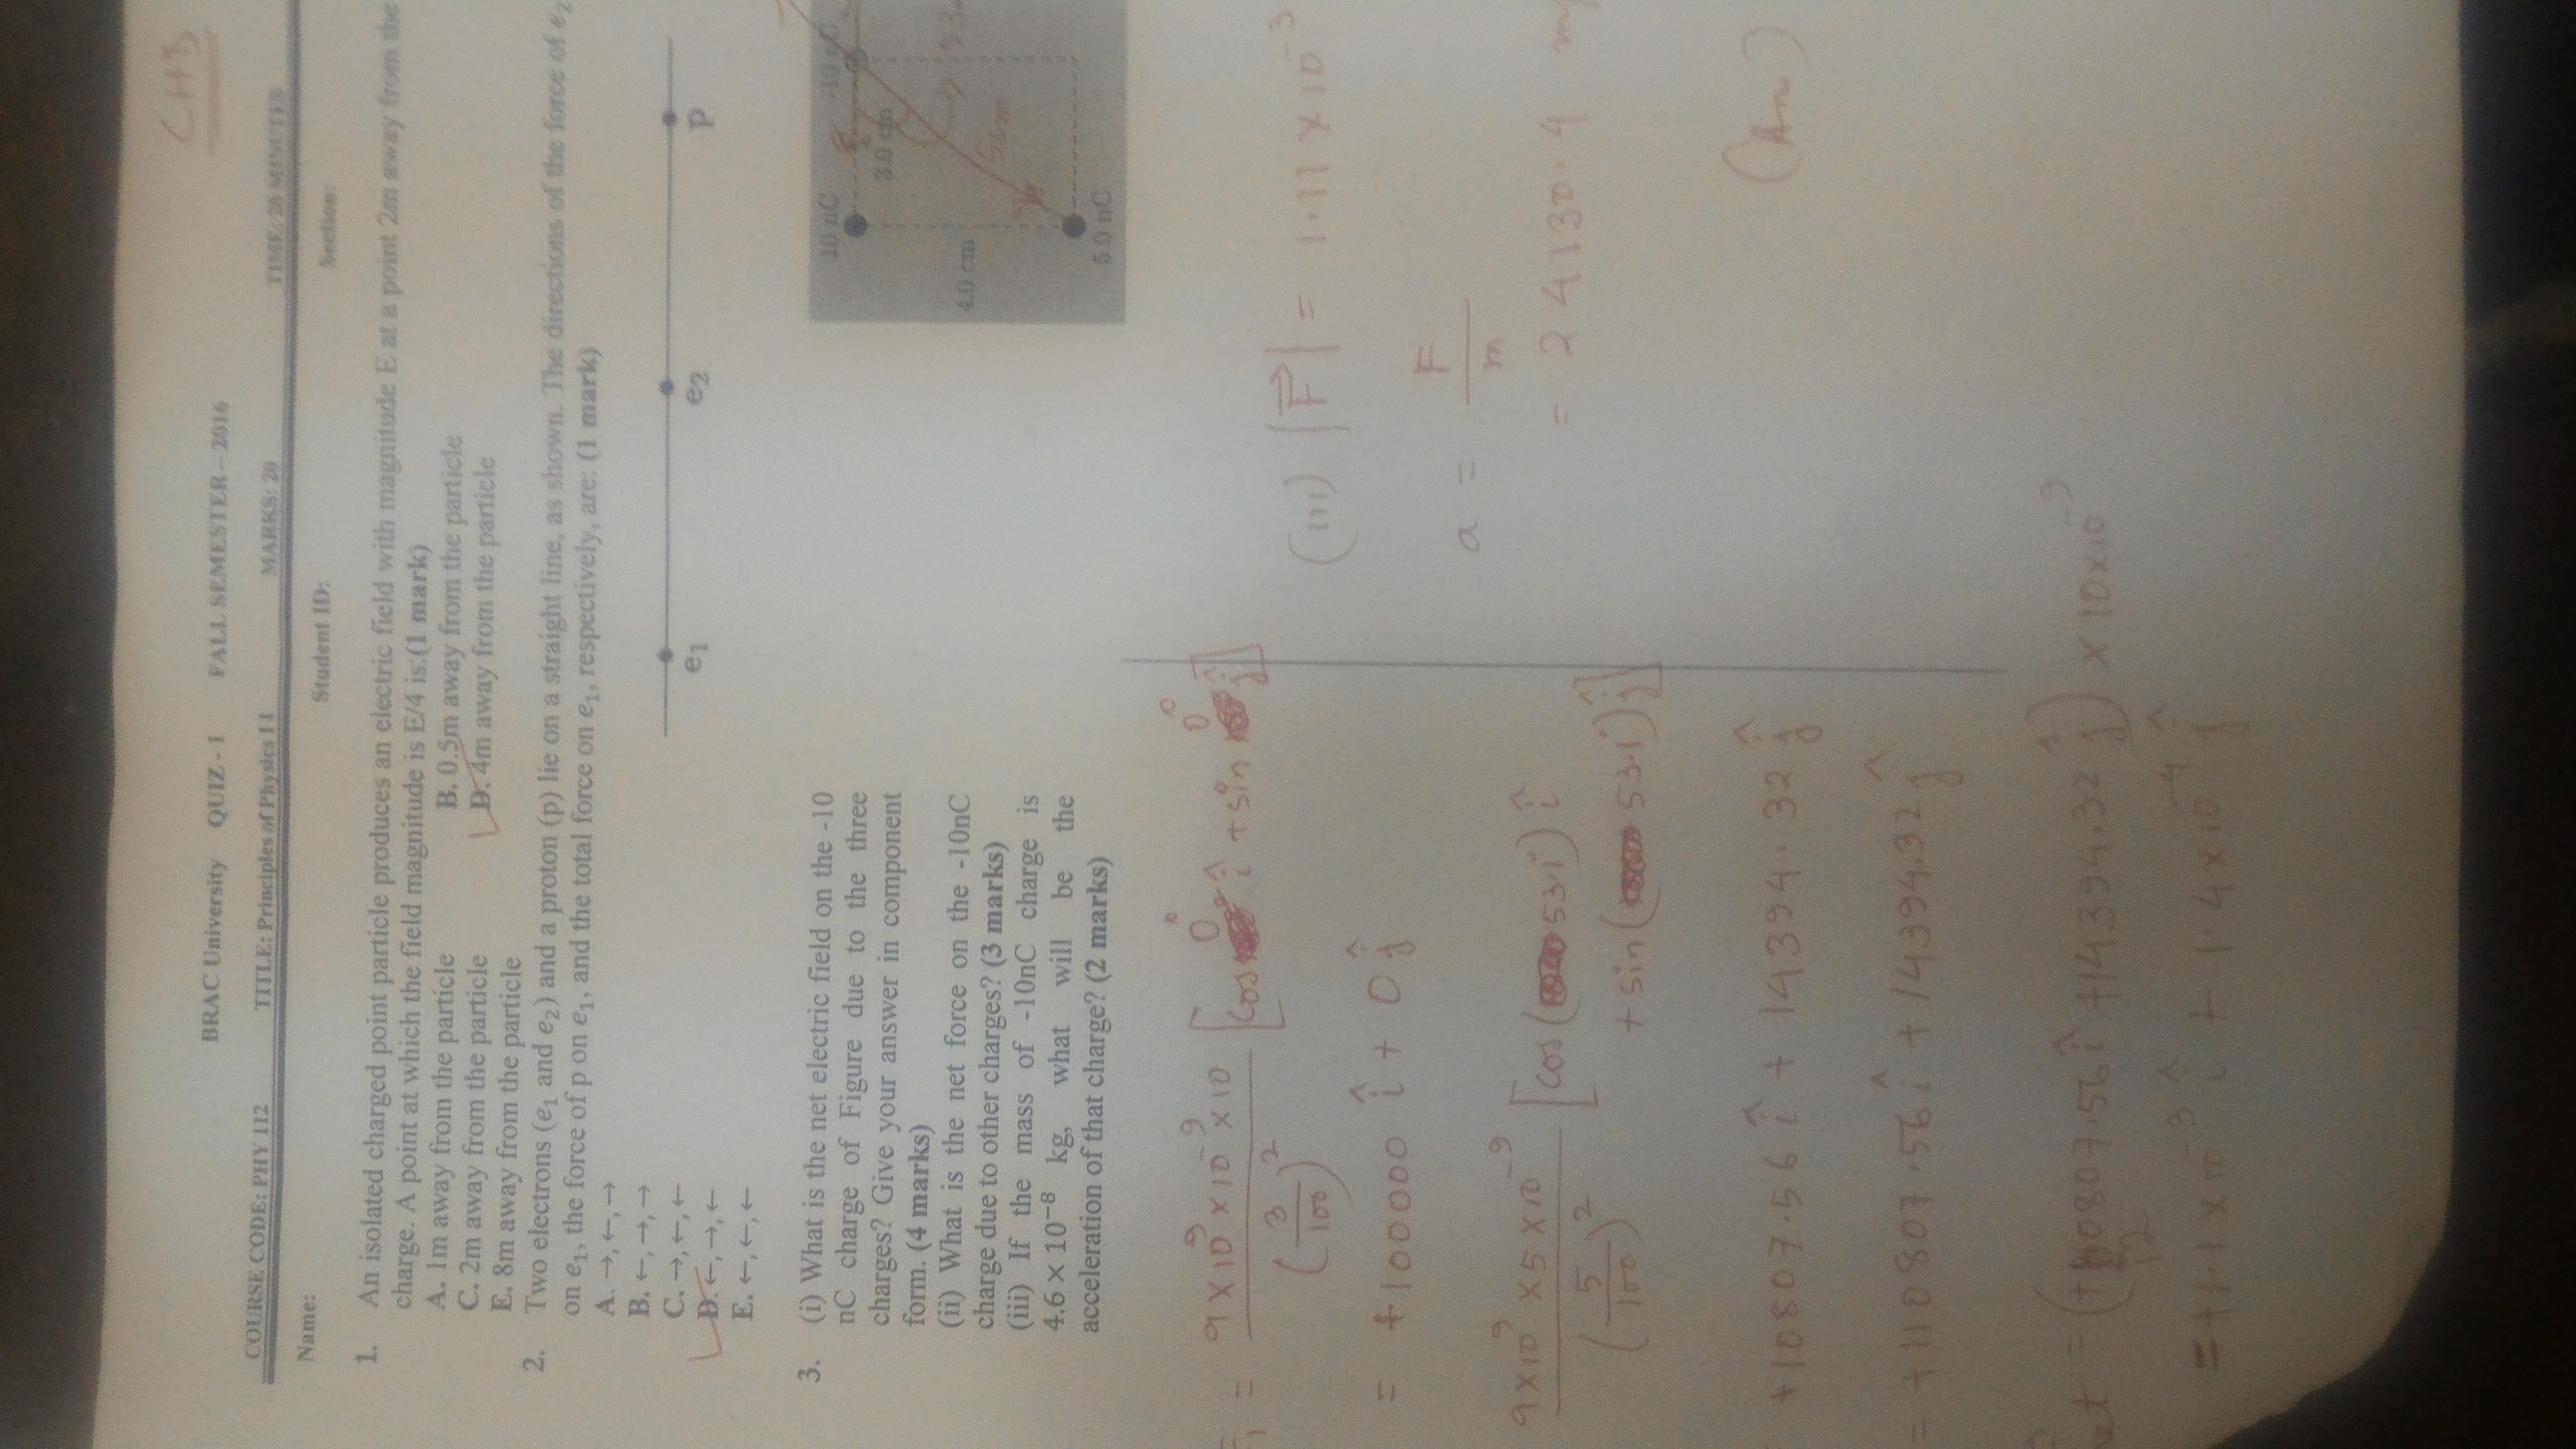 CHB
BRAC University QUIZ - 1 FALL SEMESTER – 2016
COURSE CODE: PHY 112 TITLE: Principles of Physics II MARKS: 20
Name: Student ID: Section:
1. An isolated charged point particle produces an electric field with magnitude E at a point 2m away from the
charge. A point at which the field magnitude is E/4 is:(1 mark)
A. 1m away from the particle B. 0.5m away from the particle
C. 2m away from the particle D. 4m away from the particle
E. 8m away from the particle
2. Two electrons (e₁ and e₂) and a proton (p) lie on a straight line, as shown. The directions of the force of e₂
on e₁, the force of p on e₁, and the total force on e₁, respectively, are: (1 mark)
A. →, ←, →
B. ←, →, →
C. →, ←, ←
D. ←, →, ←
E. ←, ←, ←
e₁ e₂ p
3. (i) What is the net electric field on the -10
nC charge of Figure due to the three
charges? Give your answer in component
form. (4 marks)
(ii) What is the net force on the -10nC
charge due to other charges? (3 marks)
(iii) If the mass of -10nC charge is
4.6 × 10⁻⁸ kg, what will be the
acceleration of that charge? (2 marks)
10 nC -10
3.0 cm
4.0 cm
5cm
5.0 nC
= 9×10⁹×10⁻⁹×10 / (3/100)² [cos 0° î + sin 0° ĵ]
= +100000 î + 0 ĵ
9×10⁹×5×10⁻⁹ / (5/100)² [cos(53.1°) î
+ sin(53.1°) ĵ]
+10807.56 î + 14394.32 ĵ
= +110807.56 î + 14394.32 ĵ
= (+110807.56 î + 14394.32 ĵ) × 10×10⁻⁹
= +1.1×10⁻³ î + 1.4×10⁻⁴ ĵ
(iii) |F⃗| = 1.11×10⁻³
a = F/m
= 24130.4
(Ans)